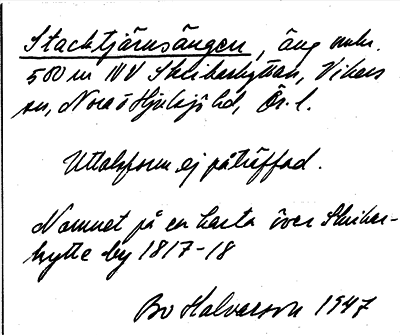 Stacktjärnsängen, äng omkr.
500 m NV Skrikarhyttan, Vikers
sn, Nora o Hjulsjö hd, Ör. l.
Uttalsform ej påträffad.
Namnet på en karta över Skrikar-
hytte by 1817-18
Bo Halvarson 1947